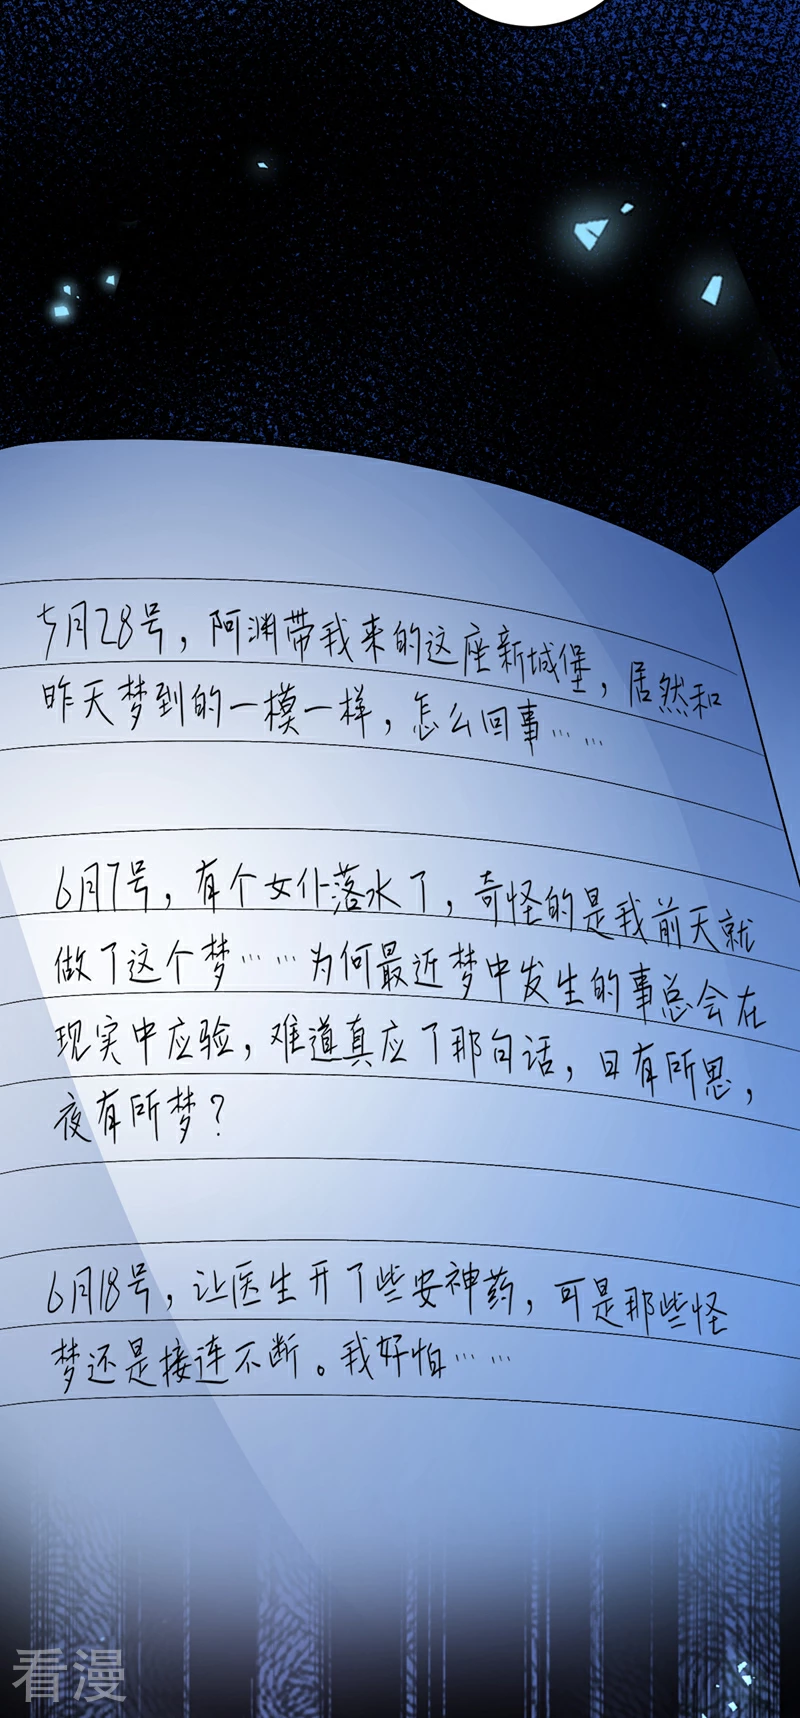 5月28号，阿渊带我来的这座新城堡，居然和
昨天梦到的一模一样，怎么回事……
6月7号，有个女仆落水了，奇怪的是我前天就
做了这个梦……为何最近梦中发生的事总会在
现实中应验，难道真应了那句话，日有所思，
夜有所梦？
6月18号，让医生开了些安神药，可是那些怪
梦还是接连不断。我好怕……
看漫